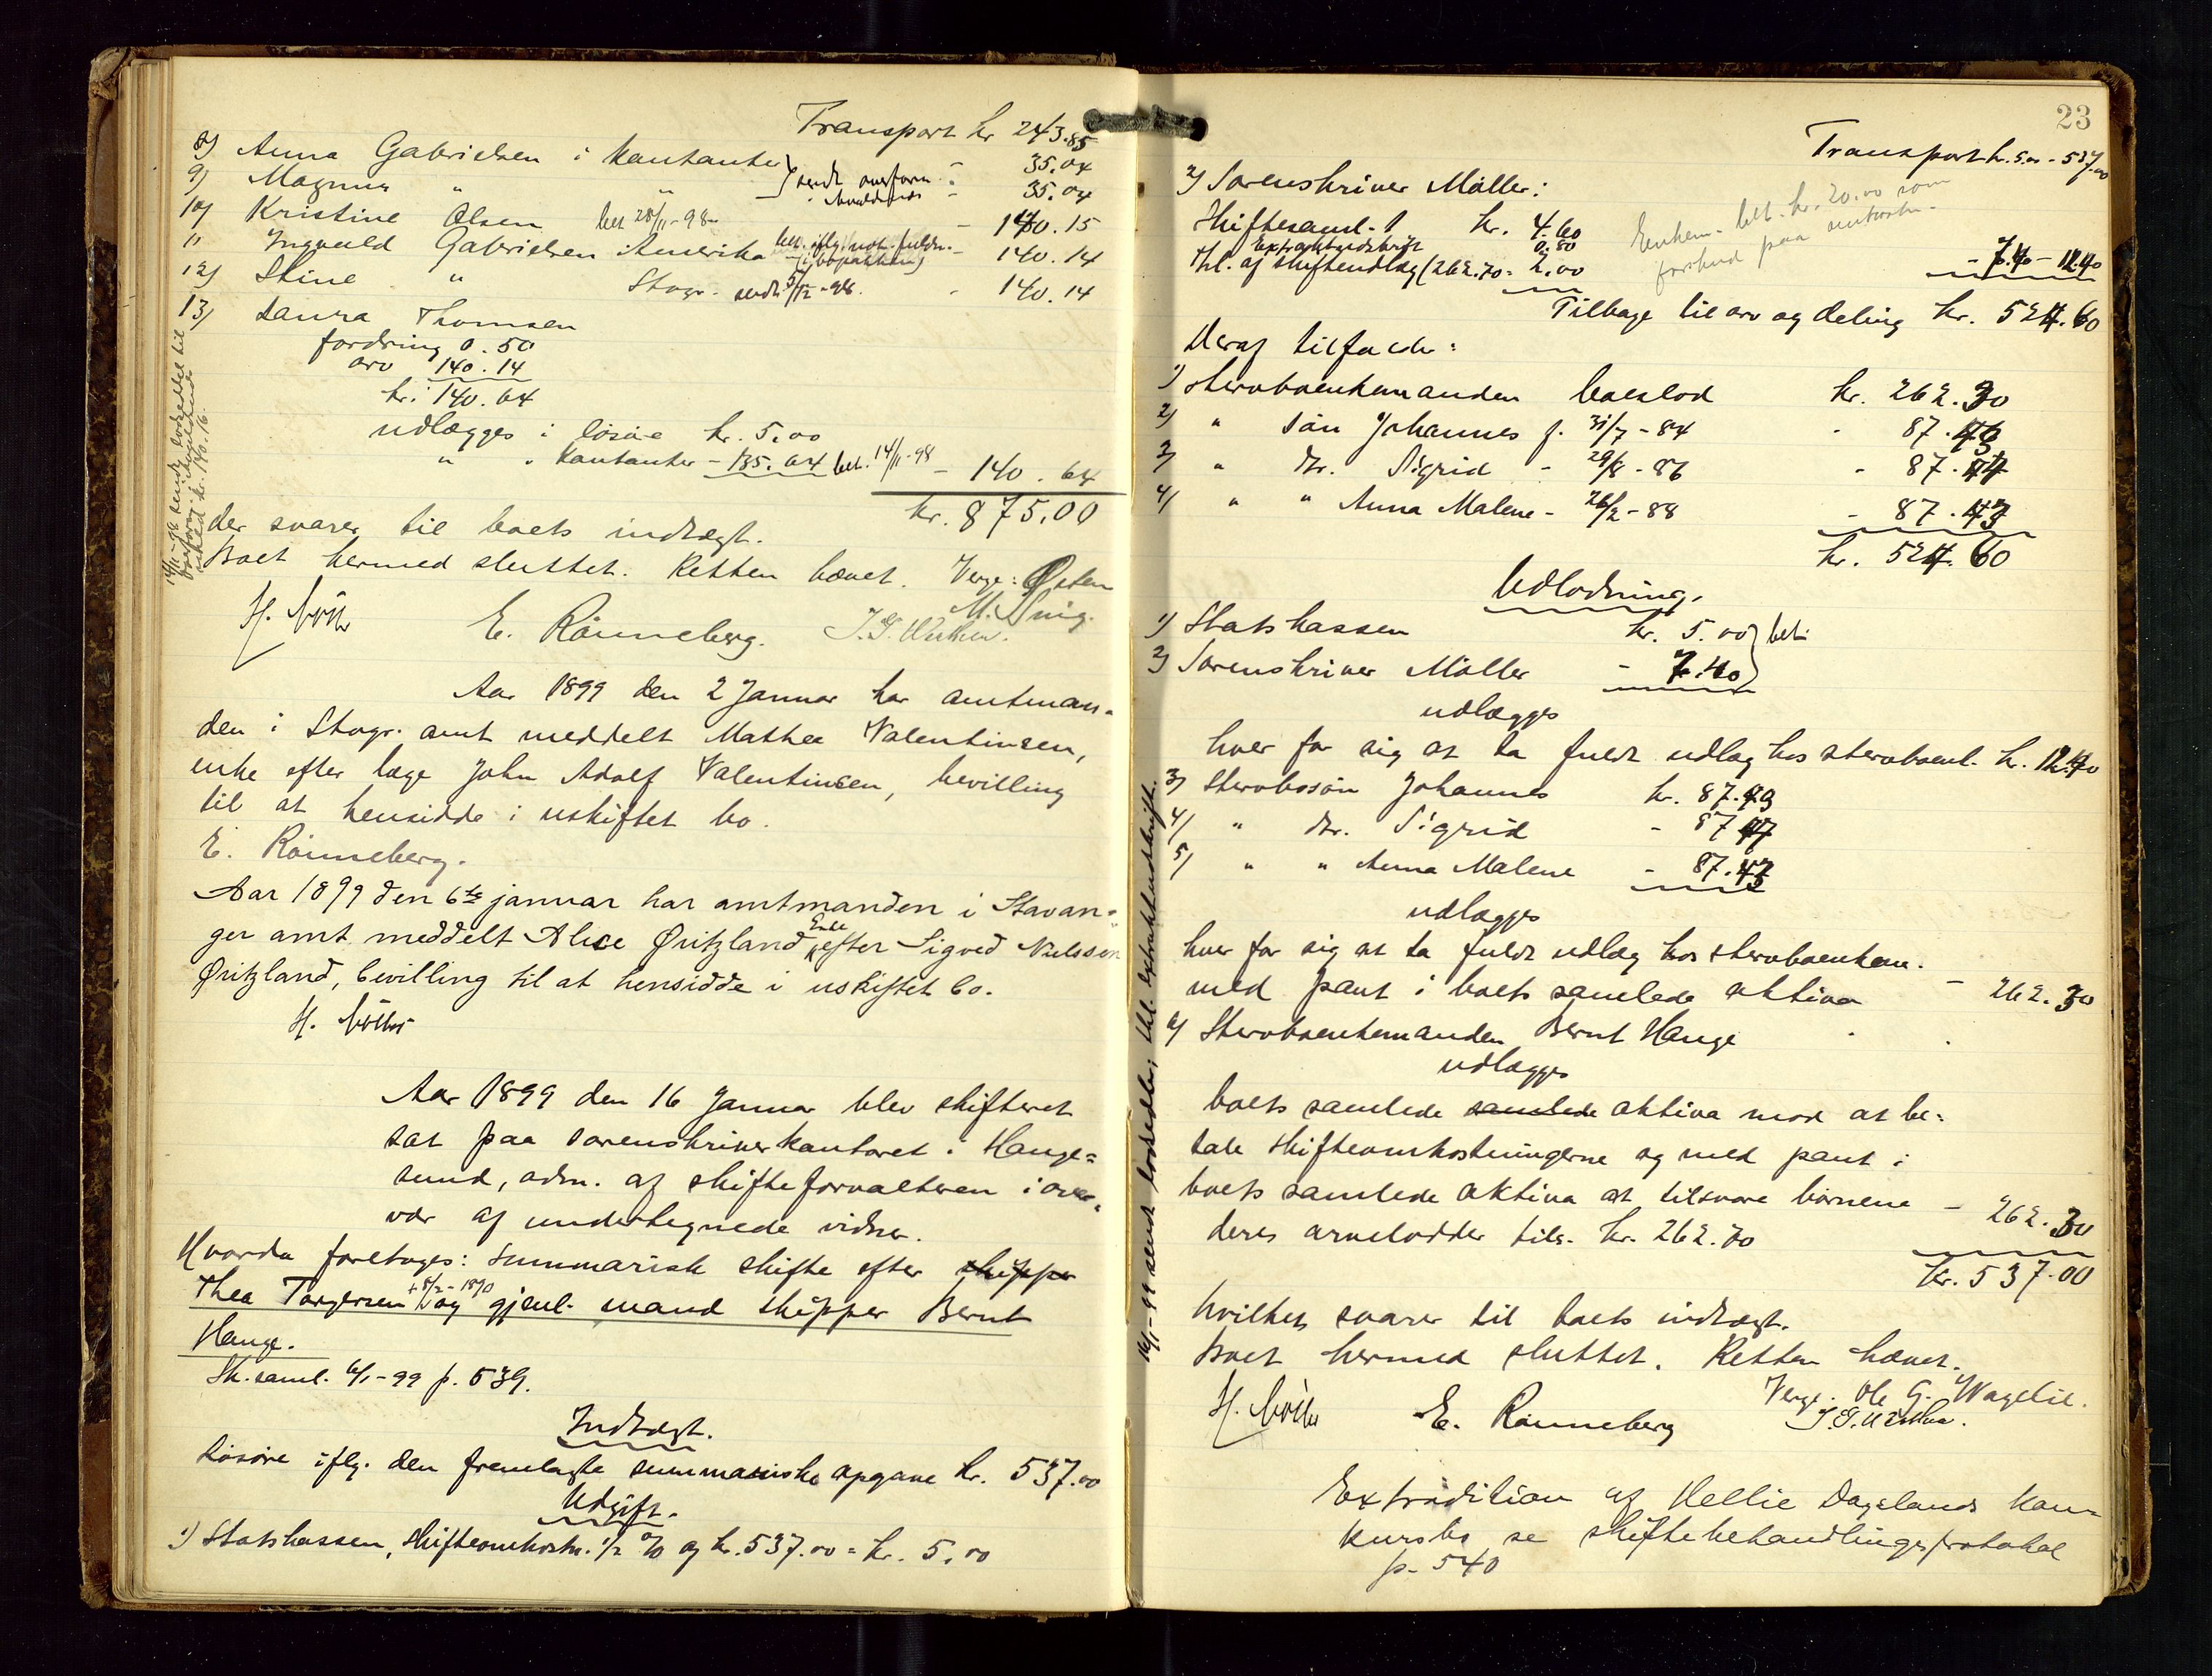 Transport kr 243.85
8) Anna Gabrielsen i kontanter 35.04
9) Magnus " " 35.04
10) Kristine Olsen bet 28/11-98 - 140.15
11 Ingvald Gabrielsen Amerika - 140.14
12) Stine " Stavgr. sendt - 140.14
13) Laura Thomsen
fordring 0.50
arv 140.14
kr. 140.64
udlægges i løsøre kr. 5.00
" " kontanter - 135.64 bet. 14/11-98 - 140.64
kr. 875.00
der svarer til boets indtægt.
Boet hermed sluttet. Retten hævet. Verge: Østen
M. Snig.
E. Rønneberg.
Aar 1899 den 2 Januar har amtman-
den i Stavgr. amt meddelt Mathea Valentinsen,
enke efter læge John Adolf Valentinsen, bevilling
til at hensidde i uskiftet bo.
E. Rønneberg.
Aar 1899 den 6te januar har amtmanden i Stavan-
ger amt meddelt Alice Øritzland Enke efter Sigved Nielssen
Øritzland, bevilling til at hensidde i uskiftet bo.
Aar 1899 den 16 Januar blev skifteret
sat paa sorenskriverkontoret i Hauge=
sund, adm. af skifteforvalteren i over-
vær af undertegnede vidner.
Hvorda foretoges: Summarisk skifte efter skipper
Thea Torgersen + 8/2-1890 og gjenl. mand skipper Bernt
Hauge.
Sk. saml. 6/1-99 p. 539.
Indtægt.
Løsøre iflg. den fremlagte summariske opgave kr. 537.00
Udgift.
1) Statskassen, skifteomkostn. 1/2 % af kr. 537.00 = kr. 5.00
23
Transport kr. 5.00 - 537.00
2) Sorenskriver Møller:
Skiftesaml. 1 kr. 4.60
Extraktudskrift 0.80
Thl. af skifteudlæg (262.30 = 2.00
Enkem. bet. kr. 20.00 som
forskud paa omkostn.
- 7.40 - 12.40
Tilbage til arv og deling kr. 524.60
Deraf tilfalder:
1) Stervboenkemanden boeslod kr. 262.30
2) " søn Johannes f. 31/7-84 - 87.43
3) " dtr. Sigrid - 29/8-86 - 87.44
4) " " Anna Malene - 26/2-88 - 87.43
kr. 524.60
Udlodning.
1) Statskassen kr. 5.00 bet.
2) Sorenskriver Møller - 7.40
udlægges
hver for sig at ta fuldt udlæg hos stervboenk. kr. 12.40
3) Stervbosøn Johannes kr. 87.43
4) " dtr. Sigrid - 87.44
5) " " Anna Malene - 87.43
udlægges
hver for sig at ta fuldt udlæg hos stervboenkem.
med pant i boets samlede aktiva - 262.30
6) Stervboenkemanden Bernt Hauge
udlægges
boets samlede samlede aktiva mod at be-
tale skifteomkostningerne og med pant i
boets samlede aktiva at tilsvare børnene - 262.30
deres arvelodder tils. kr. 262.30
kr. 537.00
hvilket svarer til boets indtægt.
Boet hermed sluttet. Retten hævet.
Verge: Ole G. Wagelie.
E. Rønneberg
16/1-99 sendt lodsedler; thl. extraktudskrift.
Extradition af Hellie Dagslands kon-
kursbo se skiftebehandlingsprotokol
p. 540